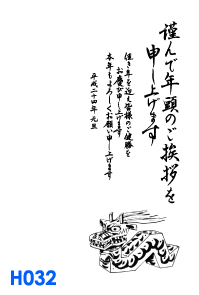 謹んで年頭のご挨拶を
申し上げます
佳き年を迎え皆様のご健勝を
お慶び申し上げます
本年もよろしくお願い申し上げます
平成二十四年 元旦
H032